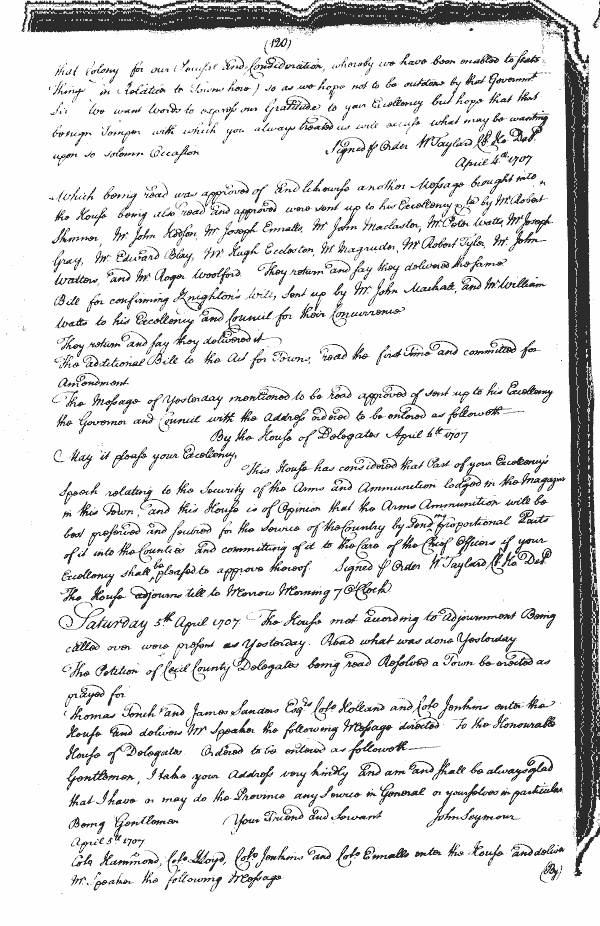 (120)
that Colony for our Succour and Consideration, whereby we have been enabled to
things in Relation to Towns here) so as we hope not to be outdone by that Governmt
Sir We want Words to express our Gratitude to your Excellency but hope that that
benign Temper with which you always treated us will accuse what may be wanting
upon so solemn Occasion Signed p Order W Taylard Cl. Ho. Del
April 4th 1707
Which being read was approved of and likewise another Message brought into
the House being also read and approved were sent up to his Excellency by Mr Robert
Skinner, Mr John Mr Joseph Ennalls, Mr John Maclaster, Mr Peter Watts, Mr Joseph
Gray, Mr Edward Blay, Mr Hugh Eccleston Mr Magruder, Mr Robert Tyler, Mr John
Watters, and Mr Roger Woolford. They return and say they delivered the same
Bill for confirming Knighton's Will, sent up by Mr John Mackall, and Mr William
Watts to his Excellency and Council for their Concurrence
They return and say they delivered it
The additional Bill to the Act for Towns, read the first Time and committed for
Amendment
The Message of Yesterday mentioned to be read approved of sent up to his Excellency
the Governor and Council with the Address ordered to be entered as followeth
By the House of Delegates April 6th 1707
May it please your Excellency,
This House has considered that Part of your Excellency's
Speech relating to the Security of the Arms and Ammunition lodged in the Magazine
in this Town, and this House is of Opinion that the Arms Ammunition will be
best preserved and secured for the Service of the Country by sending proportional Parts
of it into the Counties and committing of it to the Care of the Chief Officers if your
Excellency shall be pleased to approve thereof. Signed p Order W Taylard Cl. Ho. Del
The House adjourns till to Morrow Morning 7 O'Clock
Saturday 5th April 1707 The House met according to Adjournment Being
called over were present as Yesterday. Read what was done Yesterday
The Petition of Cecil County Delegates being read Resolved a Town be erected as
prayed for
Thomas Tench and James Sanders Esqrs Colo Holland and Colo Jenkins enter the
House and delivers Mr Speaker the following Message directed To the Honourable
House of Delegates Ordered to be entered as followeth
Gentlemen, I take your Address very kindly and am and shall be always glad
that I have or may do the Province any Service in General or yourselves in particular
Being Gentlemen Your Friend and Servant John Seymour
April 5th 1707
Colo Hammond, Colo Lloyd, Colo Jenkins and Colo Ennalls enter the House and deliver
Mr Speaker the following Message
(By)